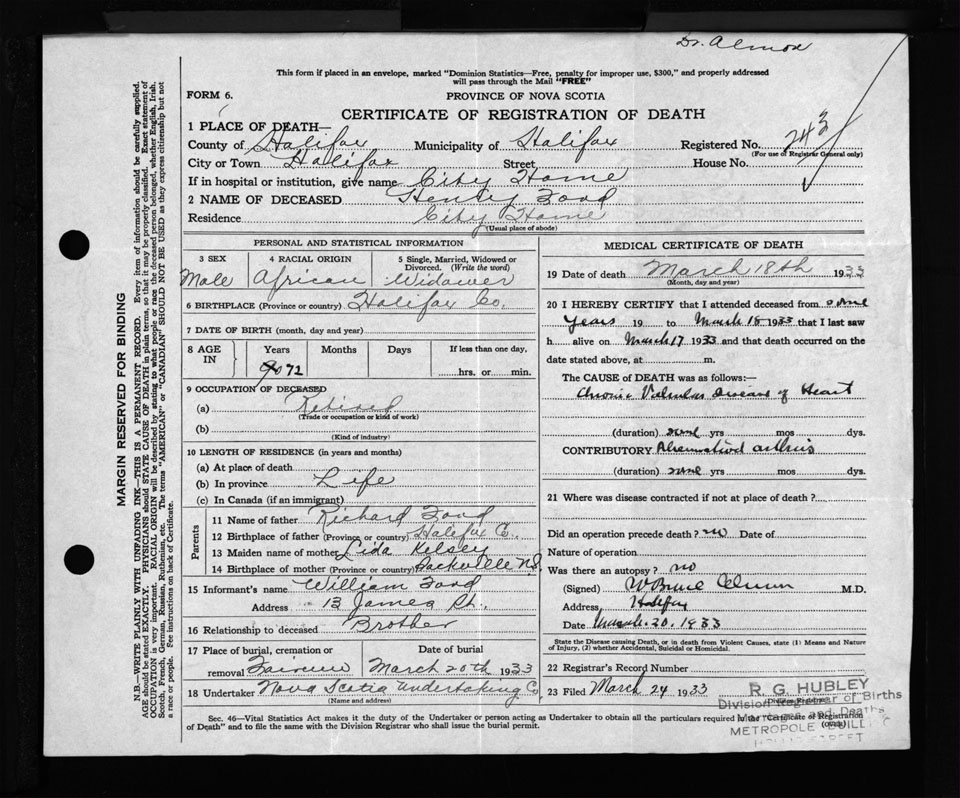 Dr. Almon
This form if placed in an envelope, marked "Dominion Statistics—Free, penalty for improper use, $300," and properly addressed
will pass through the Mail "FREE"
FORM 6.
PROVINCE OF NOVA SCOTIA
CERTIFICATE OF REGISTRATION OF DEATH
1 PLACE OF DEATH—
County of Halifax Municipality of Halifax Registered No. 243
(For use of Registrar General only)
City or Town Halifax Street House No.
If in hospital or institution, give name City Home
2 NAME OF DECEASED Henry Ford
Residence City Home
(Usual place of abode)
PERSONAL AND STATISTICAL INFORMATION
3 SEX 4 RACIAL ORIGIN 5 Single, Married, Widowed or
Divorced. (Write the word)
Male African Widower
6 BIRTHPLACE (Province or country) Halifax Co.
7 DATE OF BIRTH (month, day and year)
8 AGE IN Years Months Days If less than one day,
72 hrs. or min.
9 OCCUPATION OF DECEASED
(a) Retired
(Trade or occupation or kind of work)
(b)
(Kind of industry)
10 LENGTH OF RESIDENCE (in years and months)
(a) At place of death
(b) In province Life
(c) In Canada (if an immigrant)
Parents
11 Name of father Richard Ford
12 Birthplace of father (Province or country) Halifax Co.
13 Maiden name of mother Lida Kelsey
14 Birthplace of mother (Province or country) Sackville N.S.
15 Informant's name William Ford
Address 13 James St.
16 Relationship to deceased Brother
17 Place of burial, cremation or Date of burial
removal Fairview March 20th 1933
18 Undertaker Nova Scotia Undertaking Co
(Name and address)
MEDICAL CERTIFICATE OF DEATH
19 Date of death March 18th 1933
(Month, day and year)
20 I HEREBY CERTIFY that I attended deceased from some
years 19 to March 18 1933 that I last saw
h alive on March 17 1933 and that death occurred on the
date stated above, at m.
The CAUSE OF DEATH was as follows:—
Chronic Valvular Disease of Heart
(duration) some yrs mos dys.
CONTRIBUTORY Rheumatoid arthritis
(duration) some yrs mos dys.
21 Where was disease contracted if not at place of death?
Did an operation precede death? no Date of
Nature of operation
Was there an autopsy? no
(Signed) W Bruce Almon M.D.
Address Halifax
Date March 20, 1933
State the Disease causing Death, or in death from Violent Causes, state (1) Means and Nature
of Injury, (2) whether Accidental, Suicidal or Homicidal.
22 Registrar's Record Number
23 Filed March 24 1933
(Division Registrar)
R. G. HUBLEY
Division Registrar of Births
Marriages and Deaths
METROPOLE BUILD
HOLLIS STREET
Sec. 46—Vital Statistics Act makes it the duty of the Undertaker or person acting as Undertaker to obtain all the particulars required in the Certificate of Registration
of Death" and to file the same with the Division Registrar who shall issue the burial permit. (over)
MARGIN RESERVED FOR BINDING
N.B.—WRITE PLAINLY WITH UNFADING INK—THIS IS A PERMANENT RECORD. Every item of information should be carefully supplied.
AGE should be stated EXACTLY. PHYSICIANS should STATE CAUSE OF DEATH in plain terms, so that it may be properly classified. Exact statement of
OCCUPATION is very important. RACIAL ORIGIN will be described by stating to what people or race the deceased person belonged, whether English, Irish,
Scotch, French, German, Russian, Ruthenian, etc. The terms "AMERICAN" or "CANADIAN" SHOULD NOT BE USED as they express citizenship but not
a race or people. See instructions on back of Certificate.